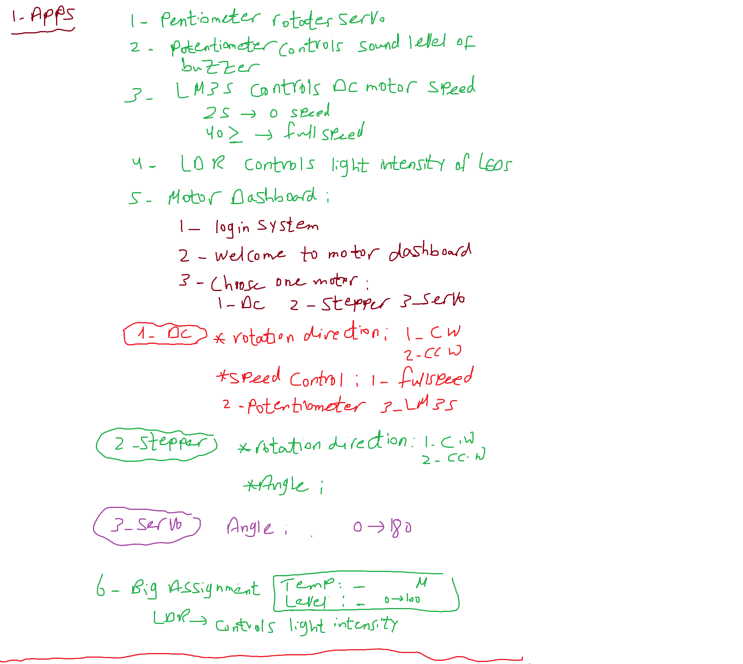 1-Apps
1- Pentiometer rotates servo
2- Potentiometer controls sound level of
buzzer
3- LM35 controls Dc motor speed
25 → 0 speed
40≥ → full speed
4- LDR controls light intensity of LEDs
5- Motor Dashboard:
1- login system
2- welcome to motor dashboard
3- Choose one motor:
1-Dc 2-Stepper 3-Servo
1- Dc * rotation direction: 1- CW
2-CCW
*speed Control: 1- fullspeed
2-Potentiometer 3-LM35
2-Stepper * rotation direction: 1- C.W
2- CC.W
*Angle:
3-Servo Angle: 0→180
6- Big Assignment Temp: - M
Level: - 0→100
LDR→ controls light intensity